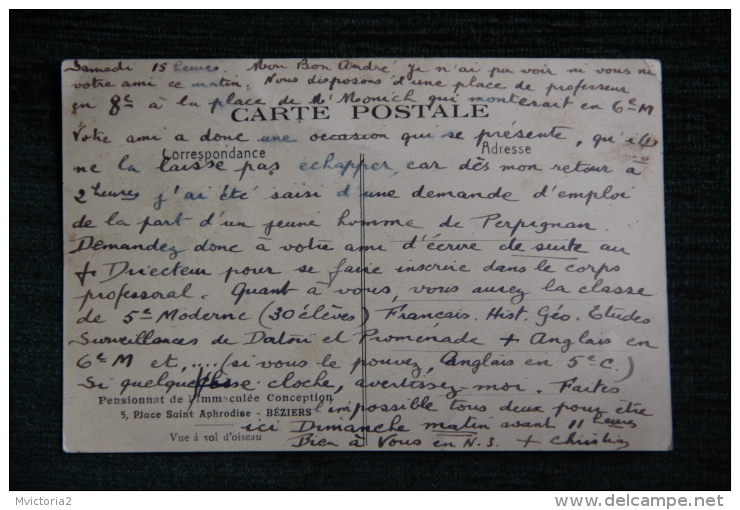 Samedi 15 heures. Mon Bon André je n'ai pu voir ni vous ni
votre ami ce matin. Nous disposons d'une place de professeur
en 8e à la place de Mr Monich qui monterait en 6e M
CARTE POSTALE
Votre ami a donc une occasion qui se présente, qu'il
Correspondance
Adresse
ne la laisse pas échapper, car dès mon retour à
2 heures j'ai été saisi d'une demande d'emploi
de la part d'un jeune homme de Perpignan.
Demandez donc à votre ami d'écrire de suite au
+ Directeur pour se faire inscrire dans le corps
professoral. Quant à vous, vous aurez la classe
de 5e Moderne (30 élèves) Français. Hist. Géo. Etudes
Surveillances de et Promenade + Anglais en
6e M et, .... (si vous le pouvez, Anglais en 5e C.)
Si quelque chose cloche, avertissez-moi. Faites
Pensionnat de l'Immaculée Conception
l'impossible tous deux pour être
5, Place Saint Aphrodise - BÉZIERS
ici Dimanche matin avant 11 heures
Vue à vol d'oiseau
Bien à Vous en N.S. + Christian
Mvictoria2
http://www.delcampe.net